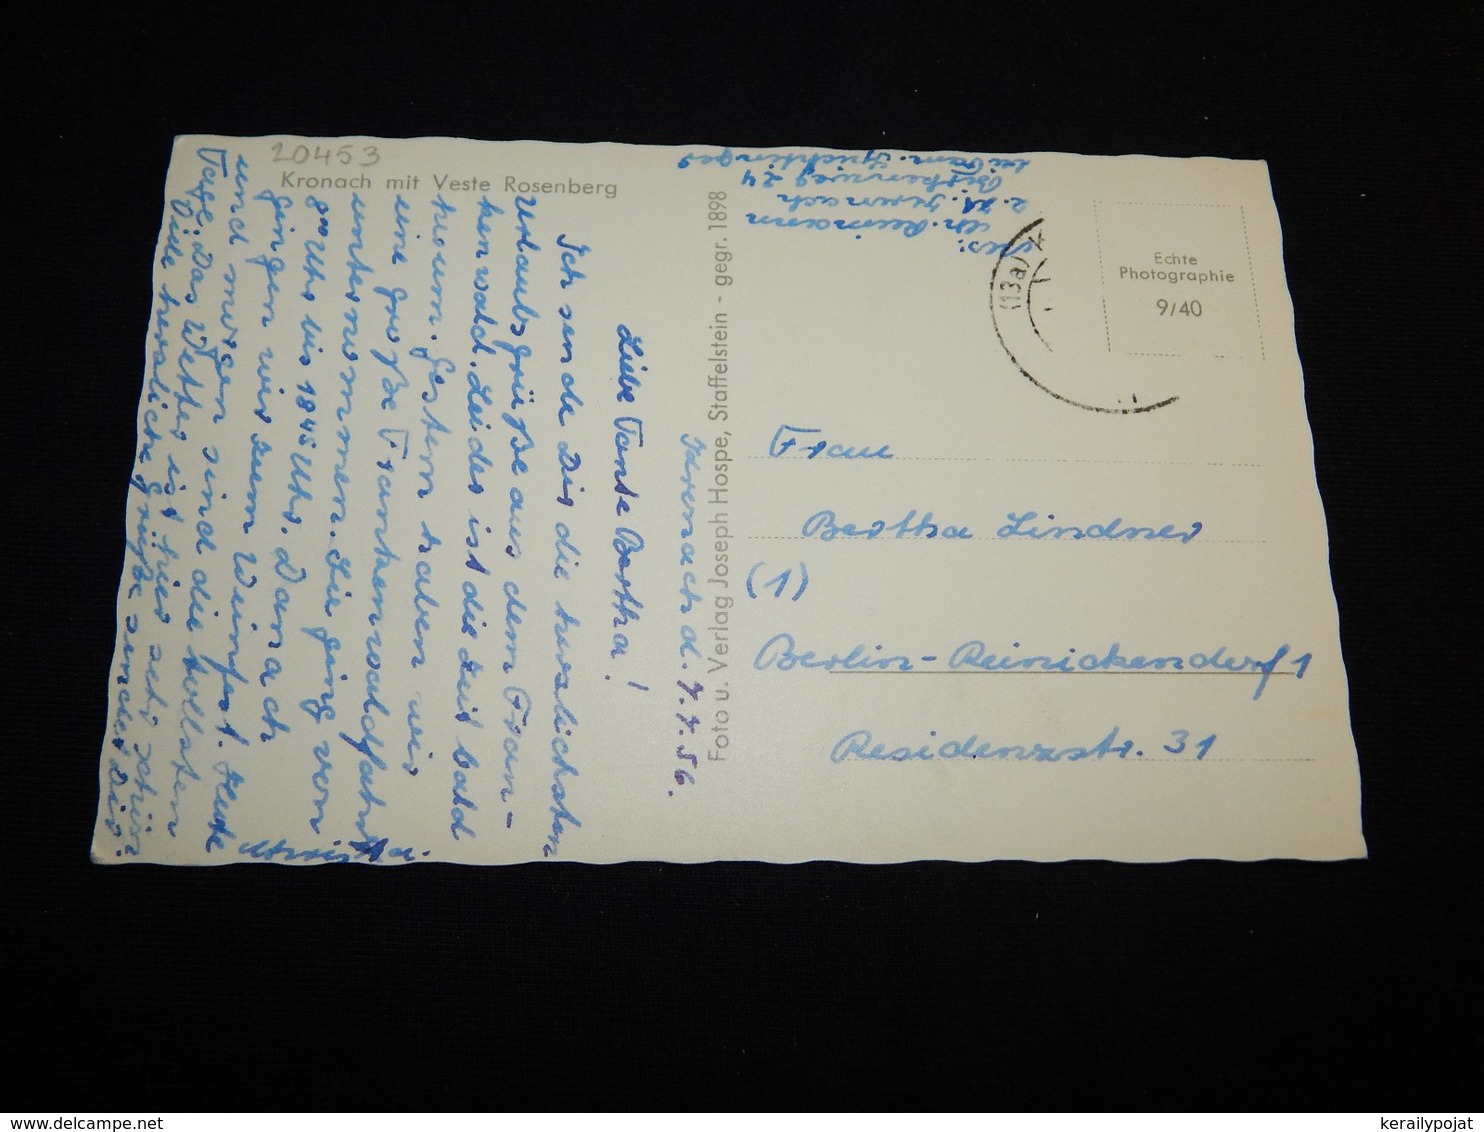 20453
Kronach mit Veste Rosenberg
Kronach d. 7.7.56.
Liebe Tante Bertha!
Ich sende Dir die herzlichsten
Urlaubsgrüße aus dem Fran-
kenwald. Leider ist die Zeit bald
herum. Gestern haben wir
eine große Frankenwaldfahrt
unternommen. Sie ging von
8⁰⁰ Uhr bis 18⁴⁵ Uhr. Danach
gingen wir zum Weinfest. Heute
und morgen sind die tollsten
Tage. Das Wetter ist hier sehr schön.
Viele herzliche Grüße sendet Dir
Foto u. Verlag Joseph Hospe, Staffelstein - gegr. 1898
Abs:
Reimann
z. Zt. Kronach
24
bei Fam.
(13a)
Echte
Photographie
9/40
Frau
Bertha Lindner
(1)
Berlin-Reinickendorf 1
Residenzstr. 31
kerailypojat
www.delcampe.net